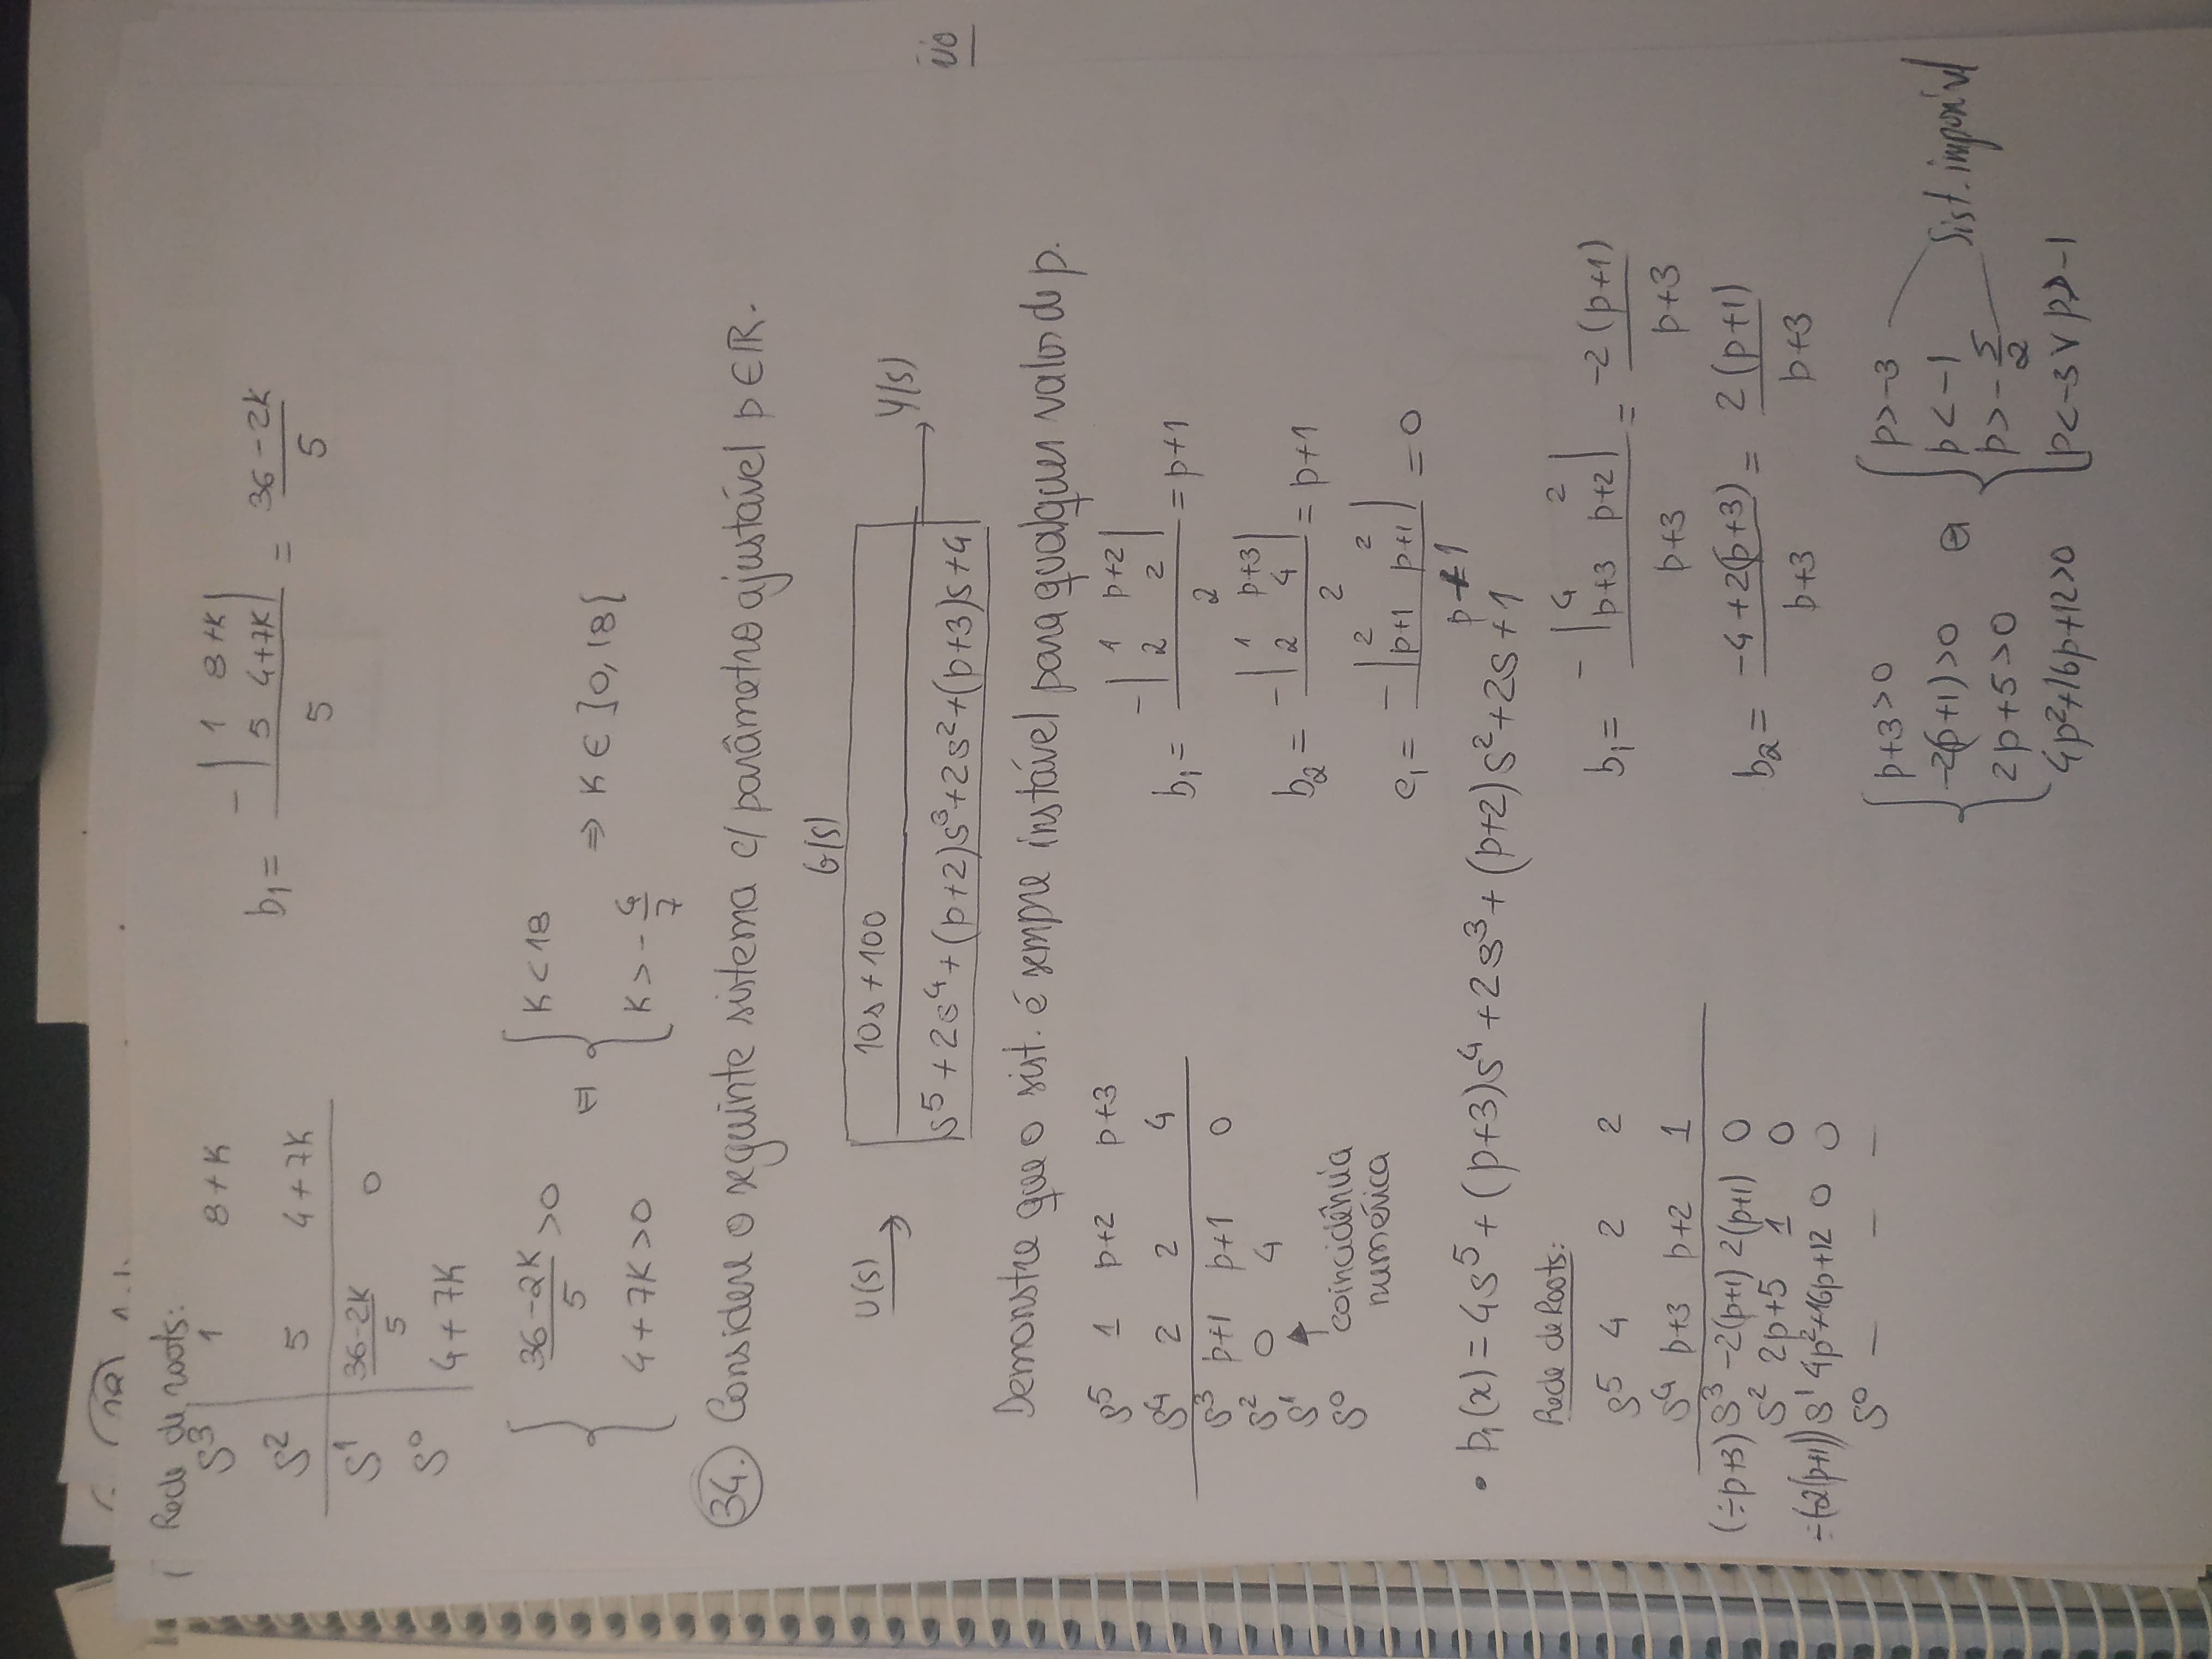 Rede de roots:
S³ 1 8+K
S² 5 4+7K
S¹ (36-2K)/5 0
S⁰ 4+7K
b₁ = -|1 8+K; 5 4+7K| / 5 = (36-2K)/5
{ (36-2K)/5 >0 ⇔ { K<18
4+7K>0 K>-4/7 ⇒ K ∈ ]0,18[
34. Considere o seguinte sistema c/ parâmetro ajustável p∈ℝ.
G(s)
U(s) → 10s+100 / s⁵+2s⁴+(p+2)s³+2s²+(p+3)s+4 → Y(s)
Demonstre que o sist. é sempre instável para qualquer valor de p.
S⁵ 1 p+2 p+3
S⁴ 2 2 4
S³ p+1 p+1 0
S² 0 4
S¹
S⁰
coincidência
numérica
b₁ = -|1 p+2; 2 2| / 2 = p+1
b₂ = -|1 p+3; 2 4| / 2 = p+1
c₁ = -|2 2; p+1 p+1| / p+1 = 0
• p₁(x) = 4s⁵+(p+3)s⁴+2s³+(p+2)s²+2s+1
Rede de Roots:
S⁵ 4 2 2
S⁴ p+3 p+2 1
(÷p+3) S³ -2(p+1) 2(p+1) 0
S² 2p+5 1 0
÷(-2(p+1)) S¹ 4p²+16p+12 0 0
S⁰ — — —
b₁ = -|4 2; p+3 p+2| / p+3 = -2(p+1)/(p+3)
b₂ = (-4+2(p+3))/(p+3) = 2(p+1)/(p+3)
{ p+3>0 ⇔ { p>-3
-2(p+1)>0 p<-1 Sist. impossível
2p+5>0 p>-5/2
4p²+16p+12>0 p<-3 ∨ p>-1